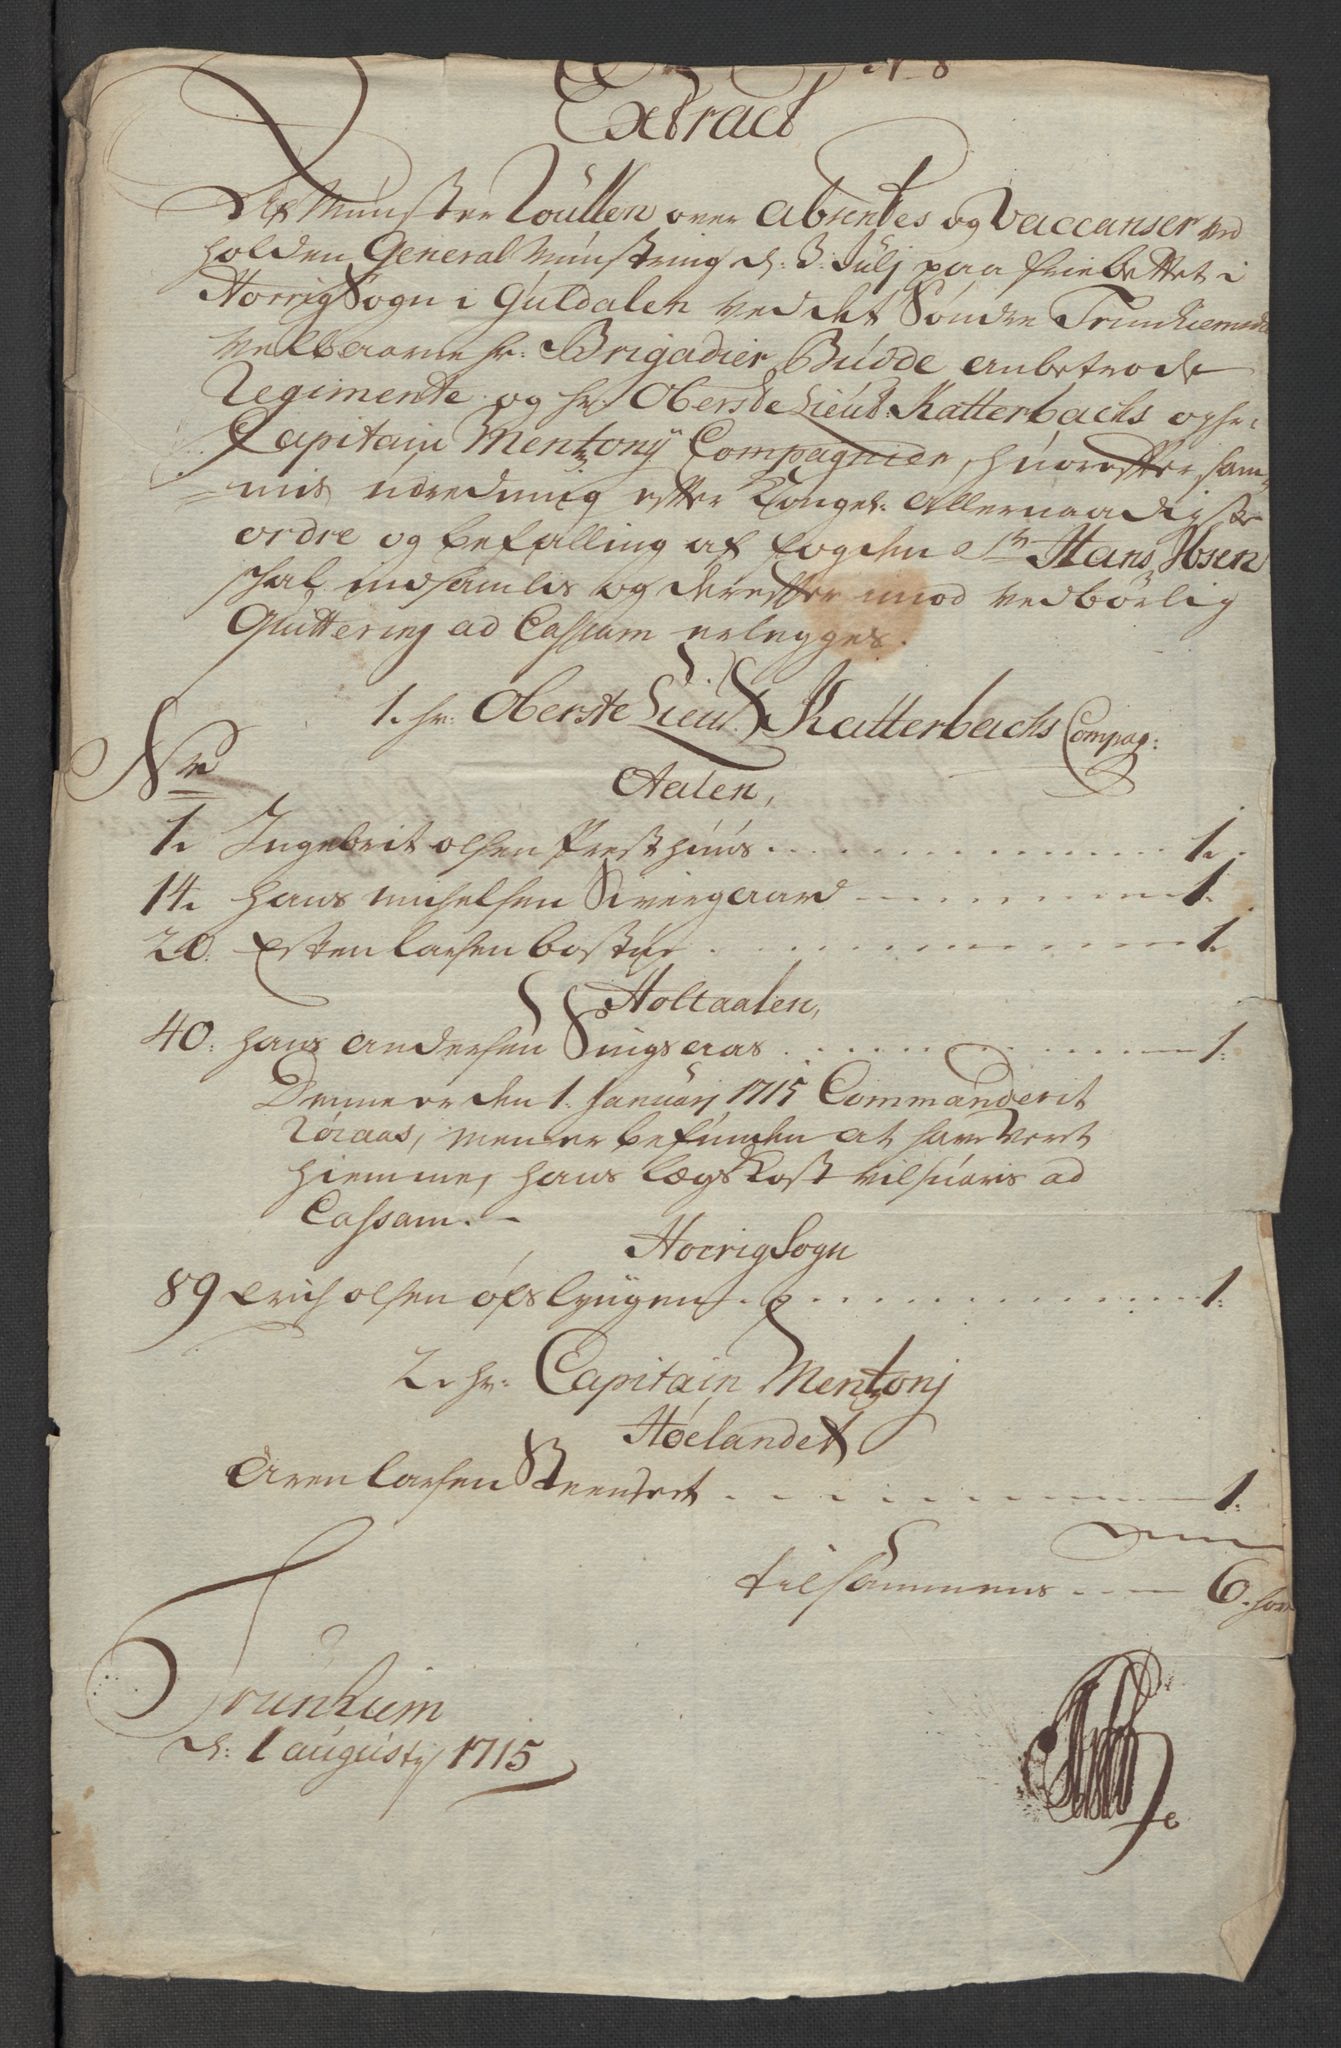 N 8
Extract
Af Mũnster Roullen over absentes og Vaccanser ved
holden General Mũnstring d: 3: Julj paa friebettet i
Horrig Sogn i Gũldalen ved det Söndre Trundhiemske
Velbaarne hr: Brigadier Büdde anbetrode
Regimente og hr: Oberste Lieut: Katterbachs og hr:
Capitain Mentzonij Compagnier, hũorefter sam¬
mes ũdredning efter Kongel: allernaadigste
ordre og befalling af fogden Sr Hans Ibsen
skal indsamlis og derefter imod vedbörlig
Quittering ad Cassam erlegges.
1. hr: Oberste Lieut Katterbachs Compag:
Nr
Aalen,
1. Ingebrit olsen Præsthũũs 1.
14. hans michelsen Svergaard 1.
20. Esten larsen bostj 1.
Holtaalen,
40: hans andersen Singsaas 1:
Denne er den 1. Januarj 1715 Commanderit
Röraas, men er befunden at have veret
hiemme, hans lægs Kost vil svaris ad
Cassam.
Horrig Sogn
89 Erich olsen öfs lyngen 1:
2. hr: Capitain Mentzonj
Höelandet
Aren larsen 1:
tilsammens 6.
Trũnhiem
d: 1 aũgustij 1715